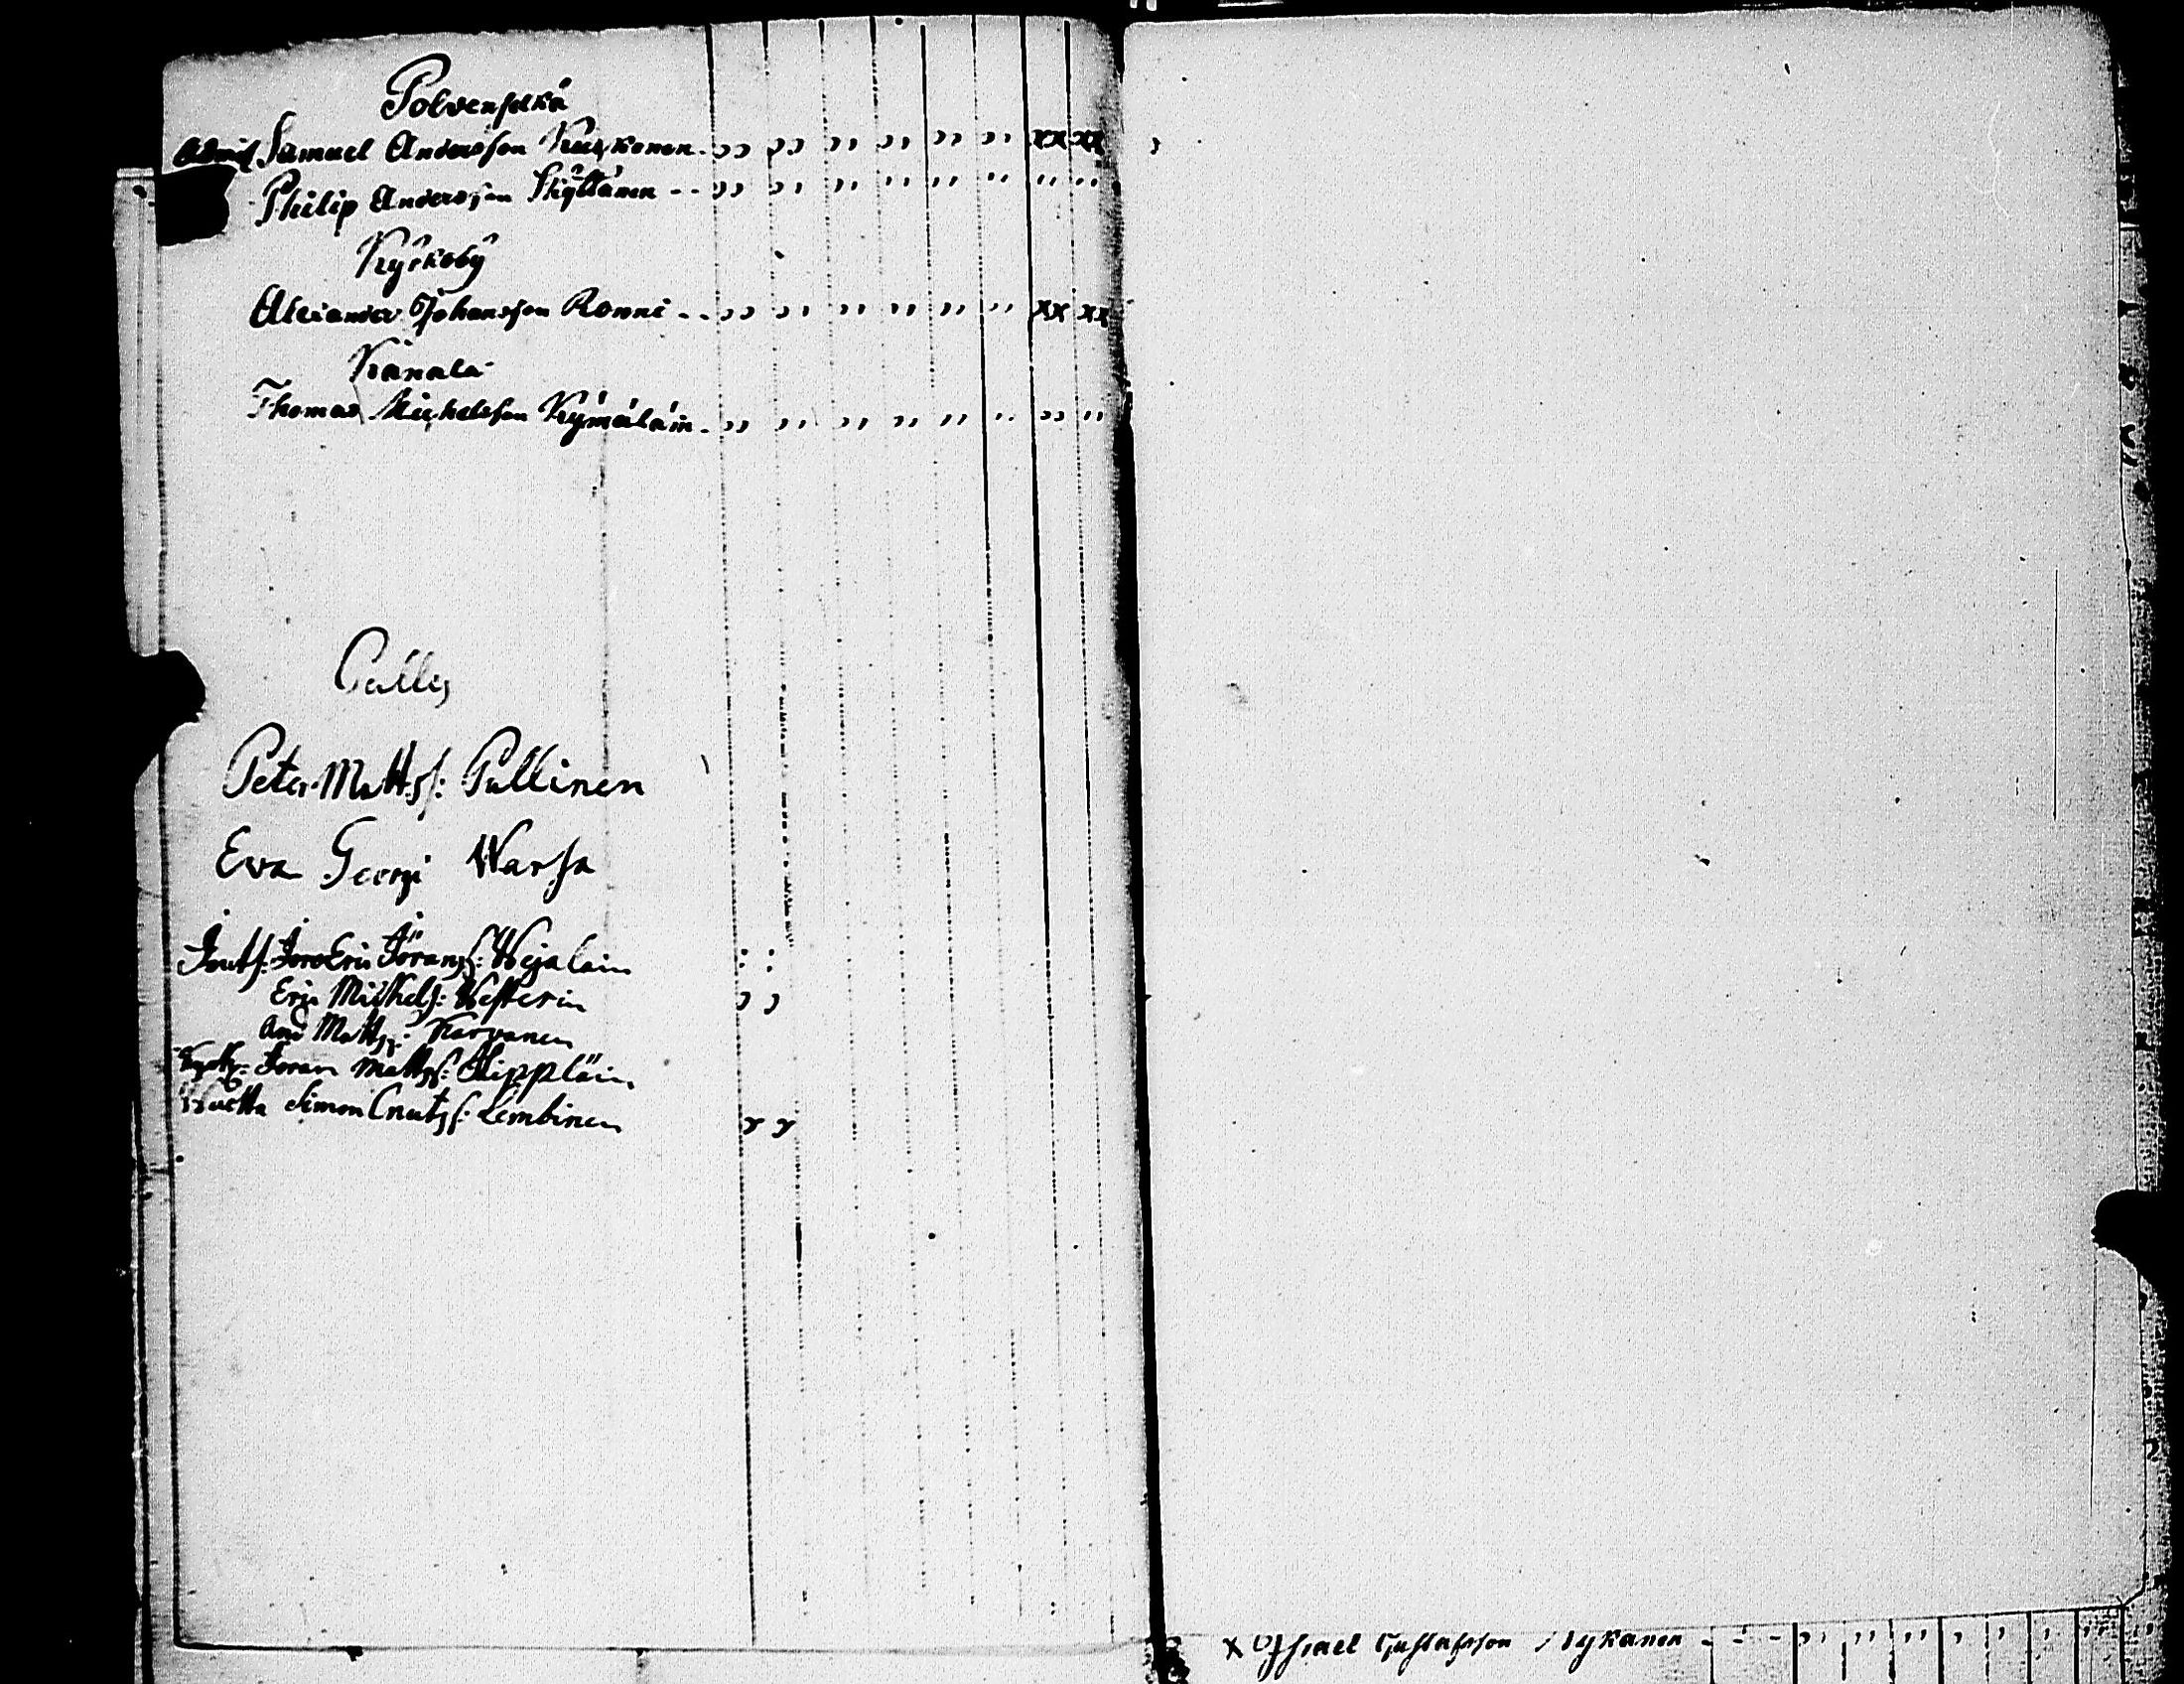 Polvenselkä
Samuel Andersson Kuskonen
Philip Andersson Hyttänen
Kyrkoby
Alexander Johansson Ronni
Kanala
Thomas Michelsson Kymäläin
Pullis
Peter Mattss: Pullinen
Eva Georgi Warsa
Eric Jöranss: Wejalain
Eric Michels: Westerin
And Mattss: Karvanen
Joran Mattss: Hippläin
Simon Cnutss: Lembinen
x Israel Gustafsson Nykänen